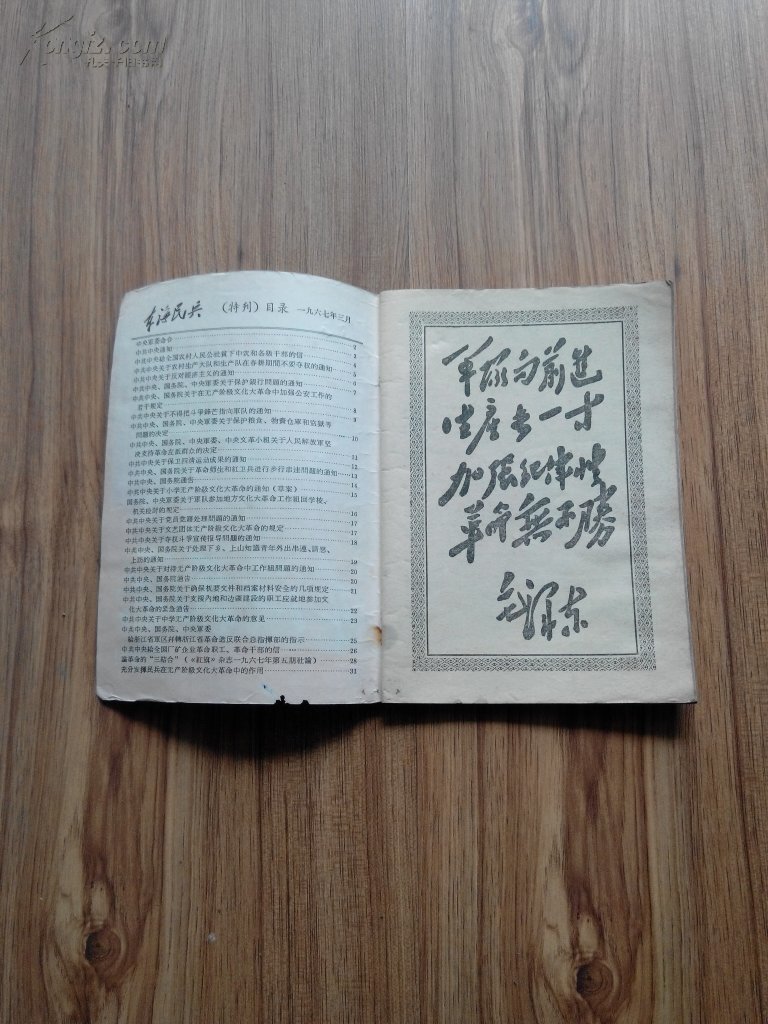 Kongfz.com
孔夫子旧书网
东海民兵 （特刊）目录 一九六七年三月
中央軍委命令 2
中共中央通知 3
中共中央給全国农村人民公社貧下中农和各級干部的信 4
中共中央关于农村生产大队和生产队在春耕期間不要夺权的通知 5
中共中央关于反对經济主义的通知 6
中共中央、国务院、中央軍委关于保护銀行問題的通知 7
中共中央、国务院关于在无产阶级文化大革命中加强公安工作的
若干規定 8
中共中央关于不得把斗爭鋒芒指向軍队的通知 9
中共中央、国务院、中央軍委关于保护粮食、物資仓庫和监獄等
問題的决定 10
中共中央、国务院、中央軍委、中央文革小組关于人民解放軍坚
决支持革命左派群众的决定 11
中共中央关于保卫四清运动成果的通知 12
中共中央、国务院关于革命师生和紅卫兵进行步行串連問題的通知 13
中共中央、国务院通告 14
中共中央关于小学无产阶级文化大革命的通知（草案） 15
国务院、中央軍委关于軍队参加地方文化大革命工作組回学校、
机关检討的規定 16
中共中央关于党員登記处理問題的通知 17
中共中央关于文艺团体无产阶级文化大革命的規定 17
中共中央关于夺权斗爭宣传报导問題的通知 18
中共中央、国务院关于处理下乡、上山知識青年外出串連、請愿、
上訪的通知 19
中共中央关于对待无产阶级文化大革命中工作組問題的通知 20
中共中央、国务院通告 20
中共中央、国务院关于确保机要文件和档案材料安全的几項規定 21
中共中央、国务院关于支援內地和边疆建設的职工应就地参加文
化大革命的紧急通告 22
中共中央关于中学无产阶级文化大革命的意見 23
中共中央、国务院、中央軍委
給浙江省軍区幷轉浙江省革命造反联合总指揮部的指示 25
中共中央給全国厂矿企业革命职工、革命干部的信 26
論革命的“三結合”（《紅旗》杂志一九六七年第五期社論） 28
充分发揮民兵在无产阶级文化大革命中的作用 31
軍队向前進
生産長一寸
加強紀律性
革命無不勝
毛澤东